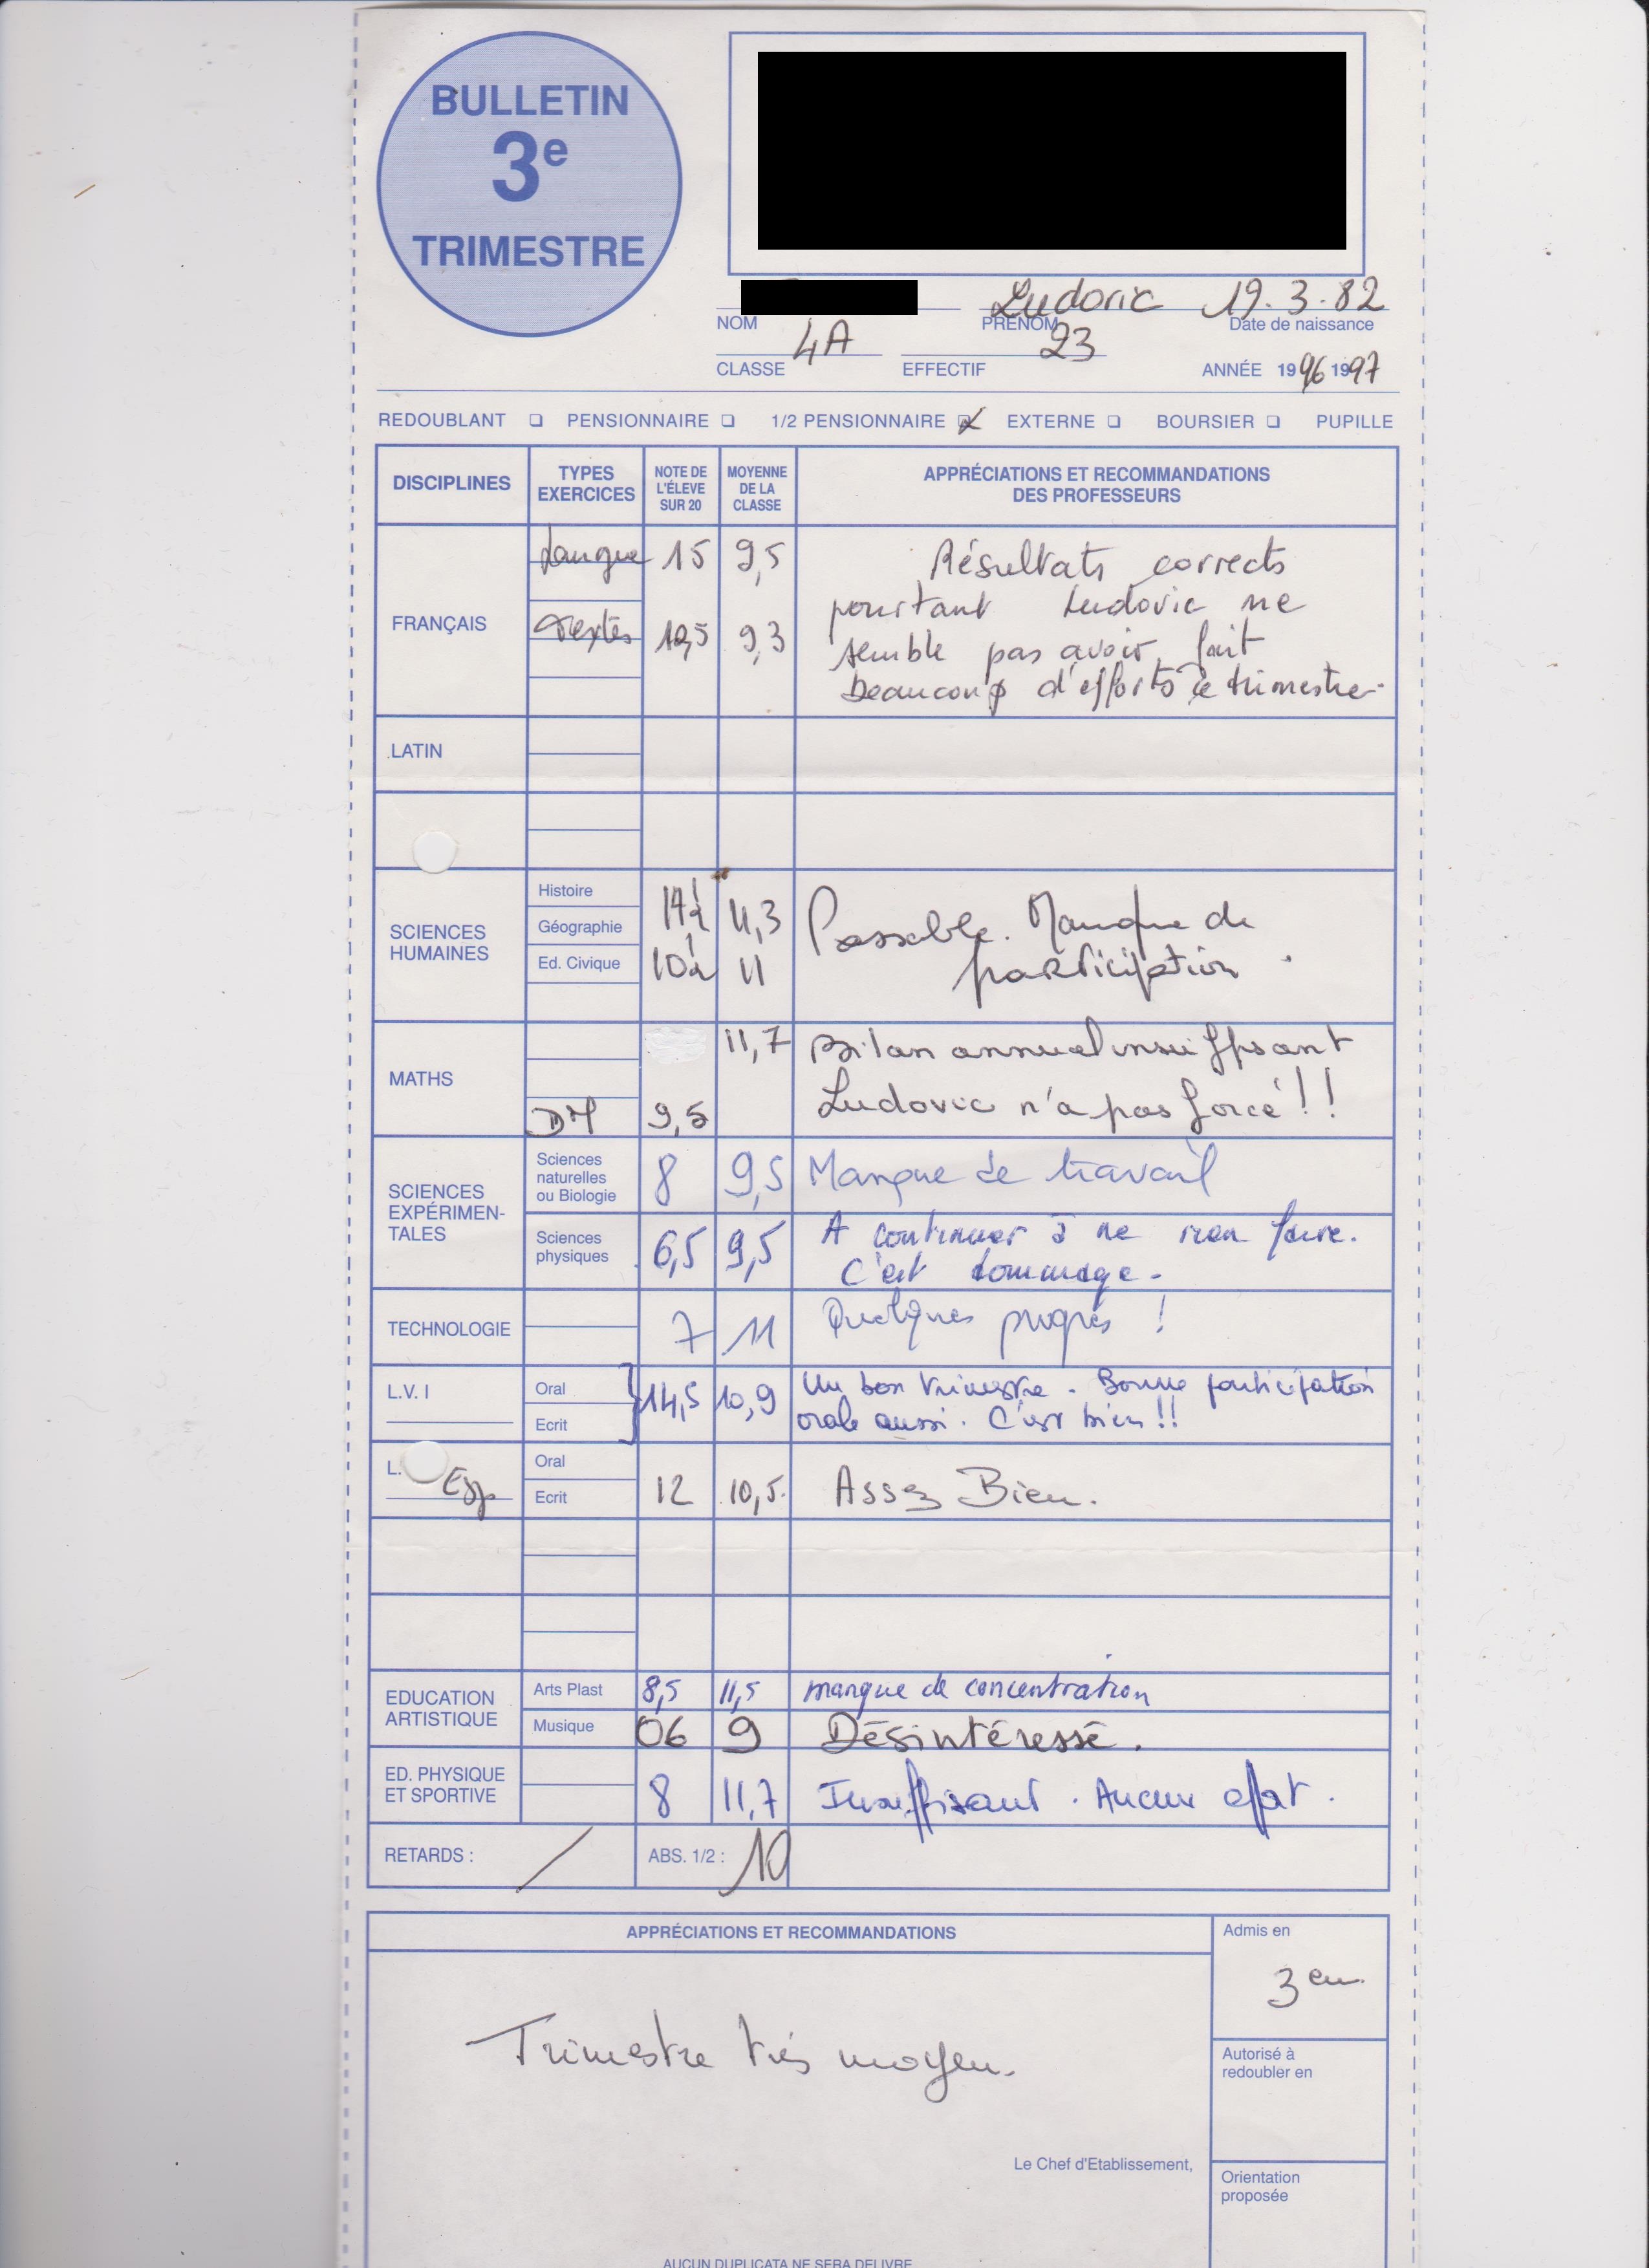 BULLETIN
3e
TRIMESTRE
Ludovic 19.3.82
NOM PRÉNOM Date de naissance
4A 23
CLASSE EFFECTIF ANNÉE 1996 1997
REDOUBLANT ❏ PENSIONNAIRE ❏ 1/2 PENSIONNAIRE ❏ EXTERNE ❏ BOURSIER ❏ PUPILLE
DISCIPLINES
TYPES
EXERCICES
NOTE DE
L'ÉLEVE
SUR 20
MOYENNE
DE LA
CLASSE
APPRÉCIATIONS ET RECOMMANDATIONS
DES PROFESSEURS
FRANÇAIS
Langue 15 9,5
Textes 9,3
Résultats corrects
pourtant Ludovic ne
semble pas avoir fait
beaucoup d'efforts ce trimestre.
LATIN
SCIENCES
HUMAINES
Histoire
Géographie
Ed. Civique
11,3
11
Passable. Manque de
participation.
MATHS
11,7
DM 9,5
Bilan annuel insuffisant
Ludovic n'a pas forcé!!
SCIENCES
EXPÉRIMEN-
TALES
Sciences
naturelles
ou Biologie
8 9,5 Manque de travail
Sciences
physiques
6,5 9,5
A continuer à ne rien faire.
C'est dommage.
TECHNOLOGIE 7 11 Quelques progrès !
L.V. I
Oral
Ecrit
14,5 10,9
Un bon trimestre. Bonne participation
orale aussi. C'est bien!!
L. Esp
Oral
Ecrit 12 10,5. Assez Bien.
EDUCATION
ARTISTIQUE
Arts Plast 8,5 11,5 manque de concentration
Musique 06 9 Désintéressé.
ED. PHYSIQUE
ET SPORTIVE
8 11,7 Insuffisant. Aucun effort.
RETARDS : / ABS. 1/2 : 10
APPRÉCIATIONS ET RECOMMANDATIONS
Admis en
3 em
Trimestre très moyen.
Autorisé à
redoubler en
Le Chef d'Etablissement,
Orientation
proposée
AUCUN DUPLICATA NE SERA DELIVRE